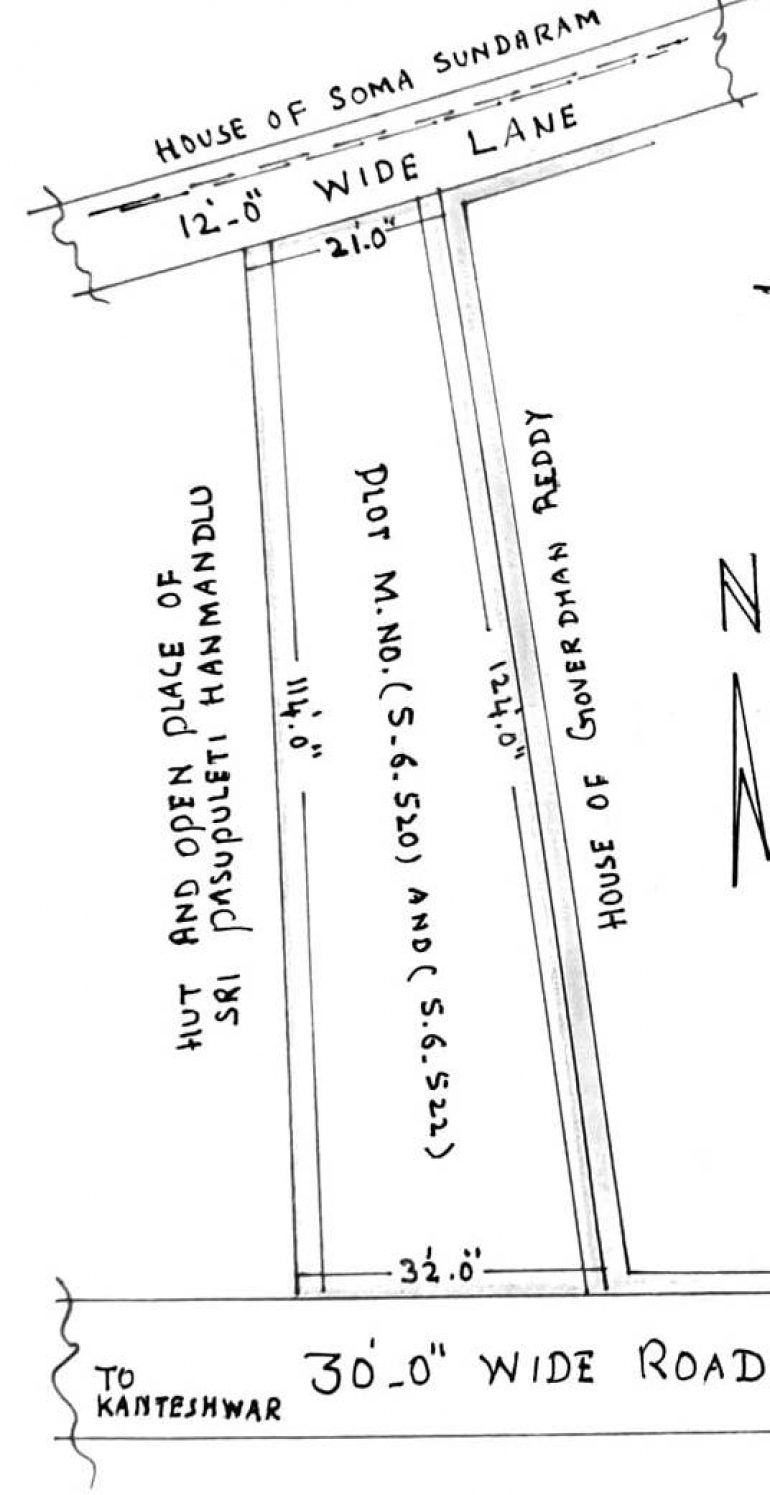 HOUSE OF SOMA SUNDARAM
12'-0" WIDE LANE
21'.0"
HUT AND OPEN PLACE OF
SRI PASUPULETI HANMANDLU
114'.0"
PLOT M.NO. (5-6-520) AND (5.6-522)
124'.0"
HOUSE OF GOVERDHAN REDDY
N
32'.0"
30'-0" WIDE ROAD
TO
KANTESHWAR